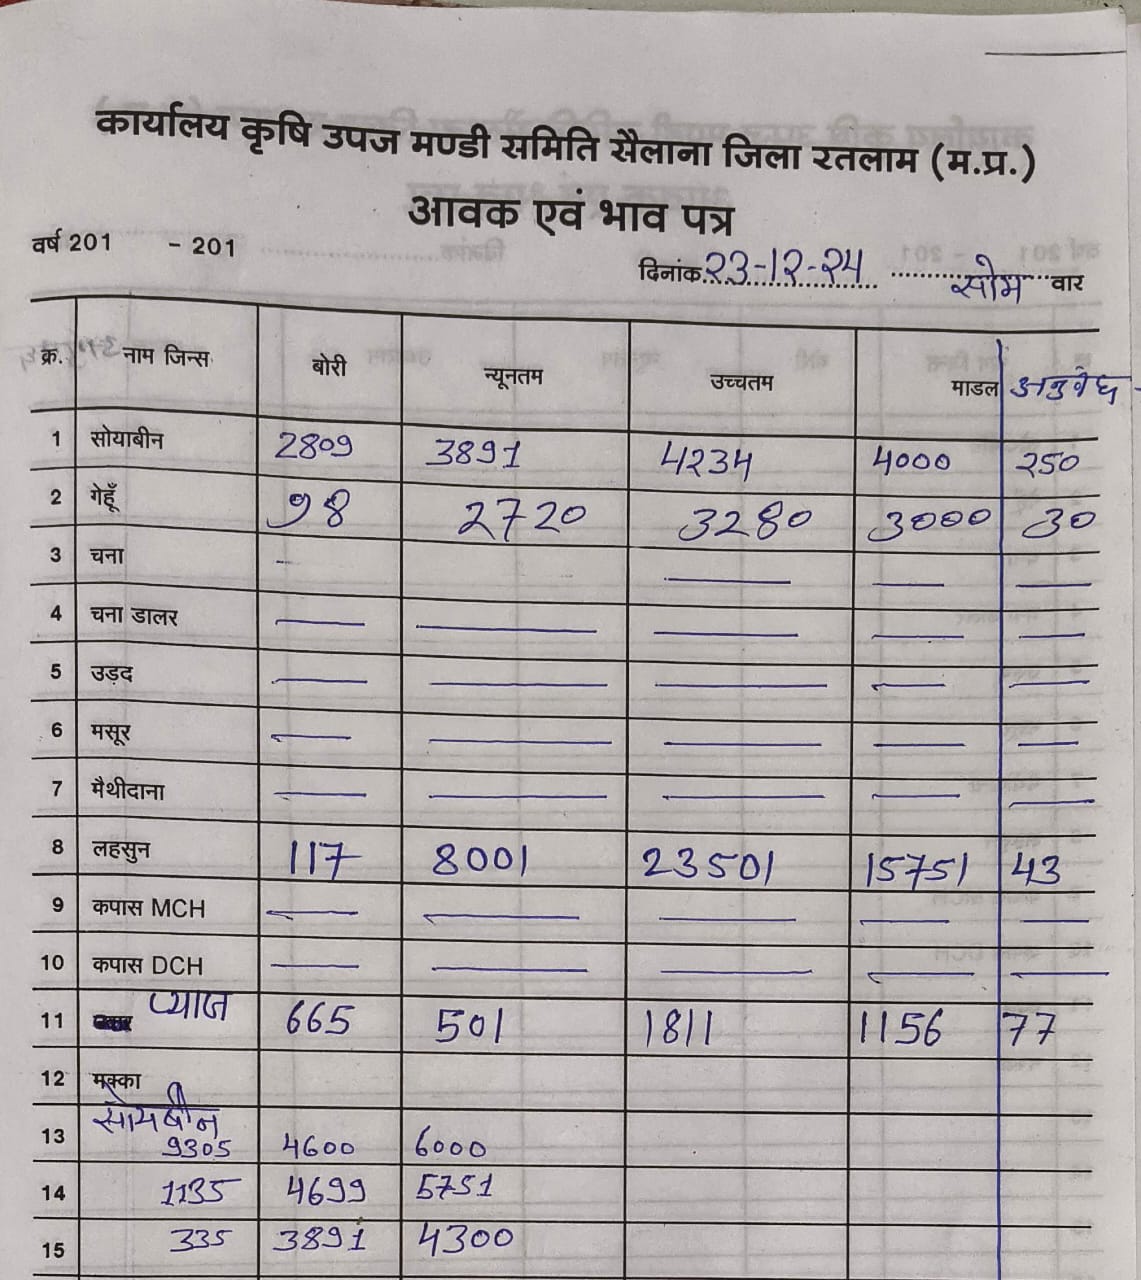 कार्यालय कृषि उपज मण्डी समिति सैलाना जिला रतलाम (म.प्र.)
आवक एवं भाव पत्र
वर्ष 201 - 201
दिनांक 23-12-24 सोम वार
क्र. नाम जिन्स बोरी न्यूनतम उच्चतम माडल अनुबंध
1 सोयाबीन 2809 3891 4234 4000 250
2 गेहूँ 98 2720 3280 3000 30
3 चना - — — —
4 चना डालर — — — — —
5 उड़द — — — — —
6 मसूर — — — — —
7 मैथीदाना — — — — —
8 लहसुन 117 8001 23501 15751 43
9 कपास MCH — — — — —
10 कपास DCH — — — — —
11 प्याज 665 501 1811 1156 77
12 मक्का
सोयबीन
13 9305 4600 6000
14 1135 4699 5751
15 335 3891 4300